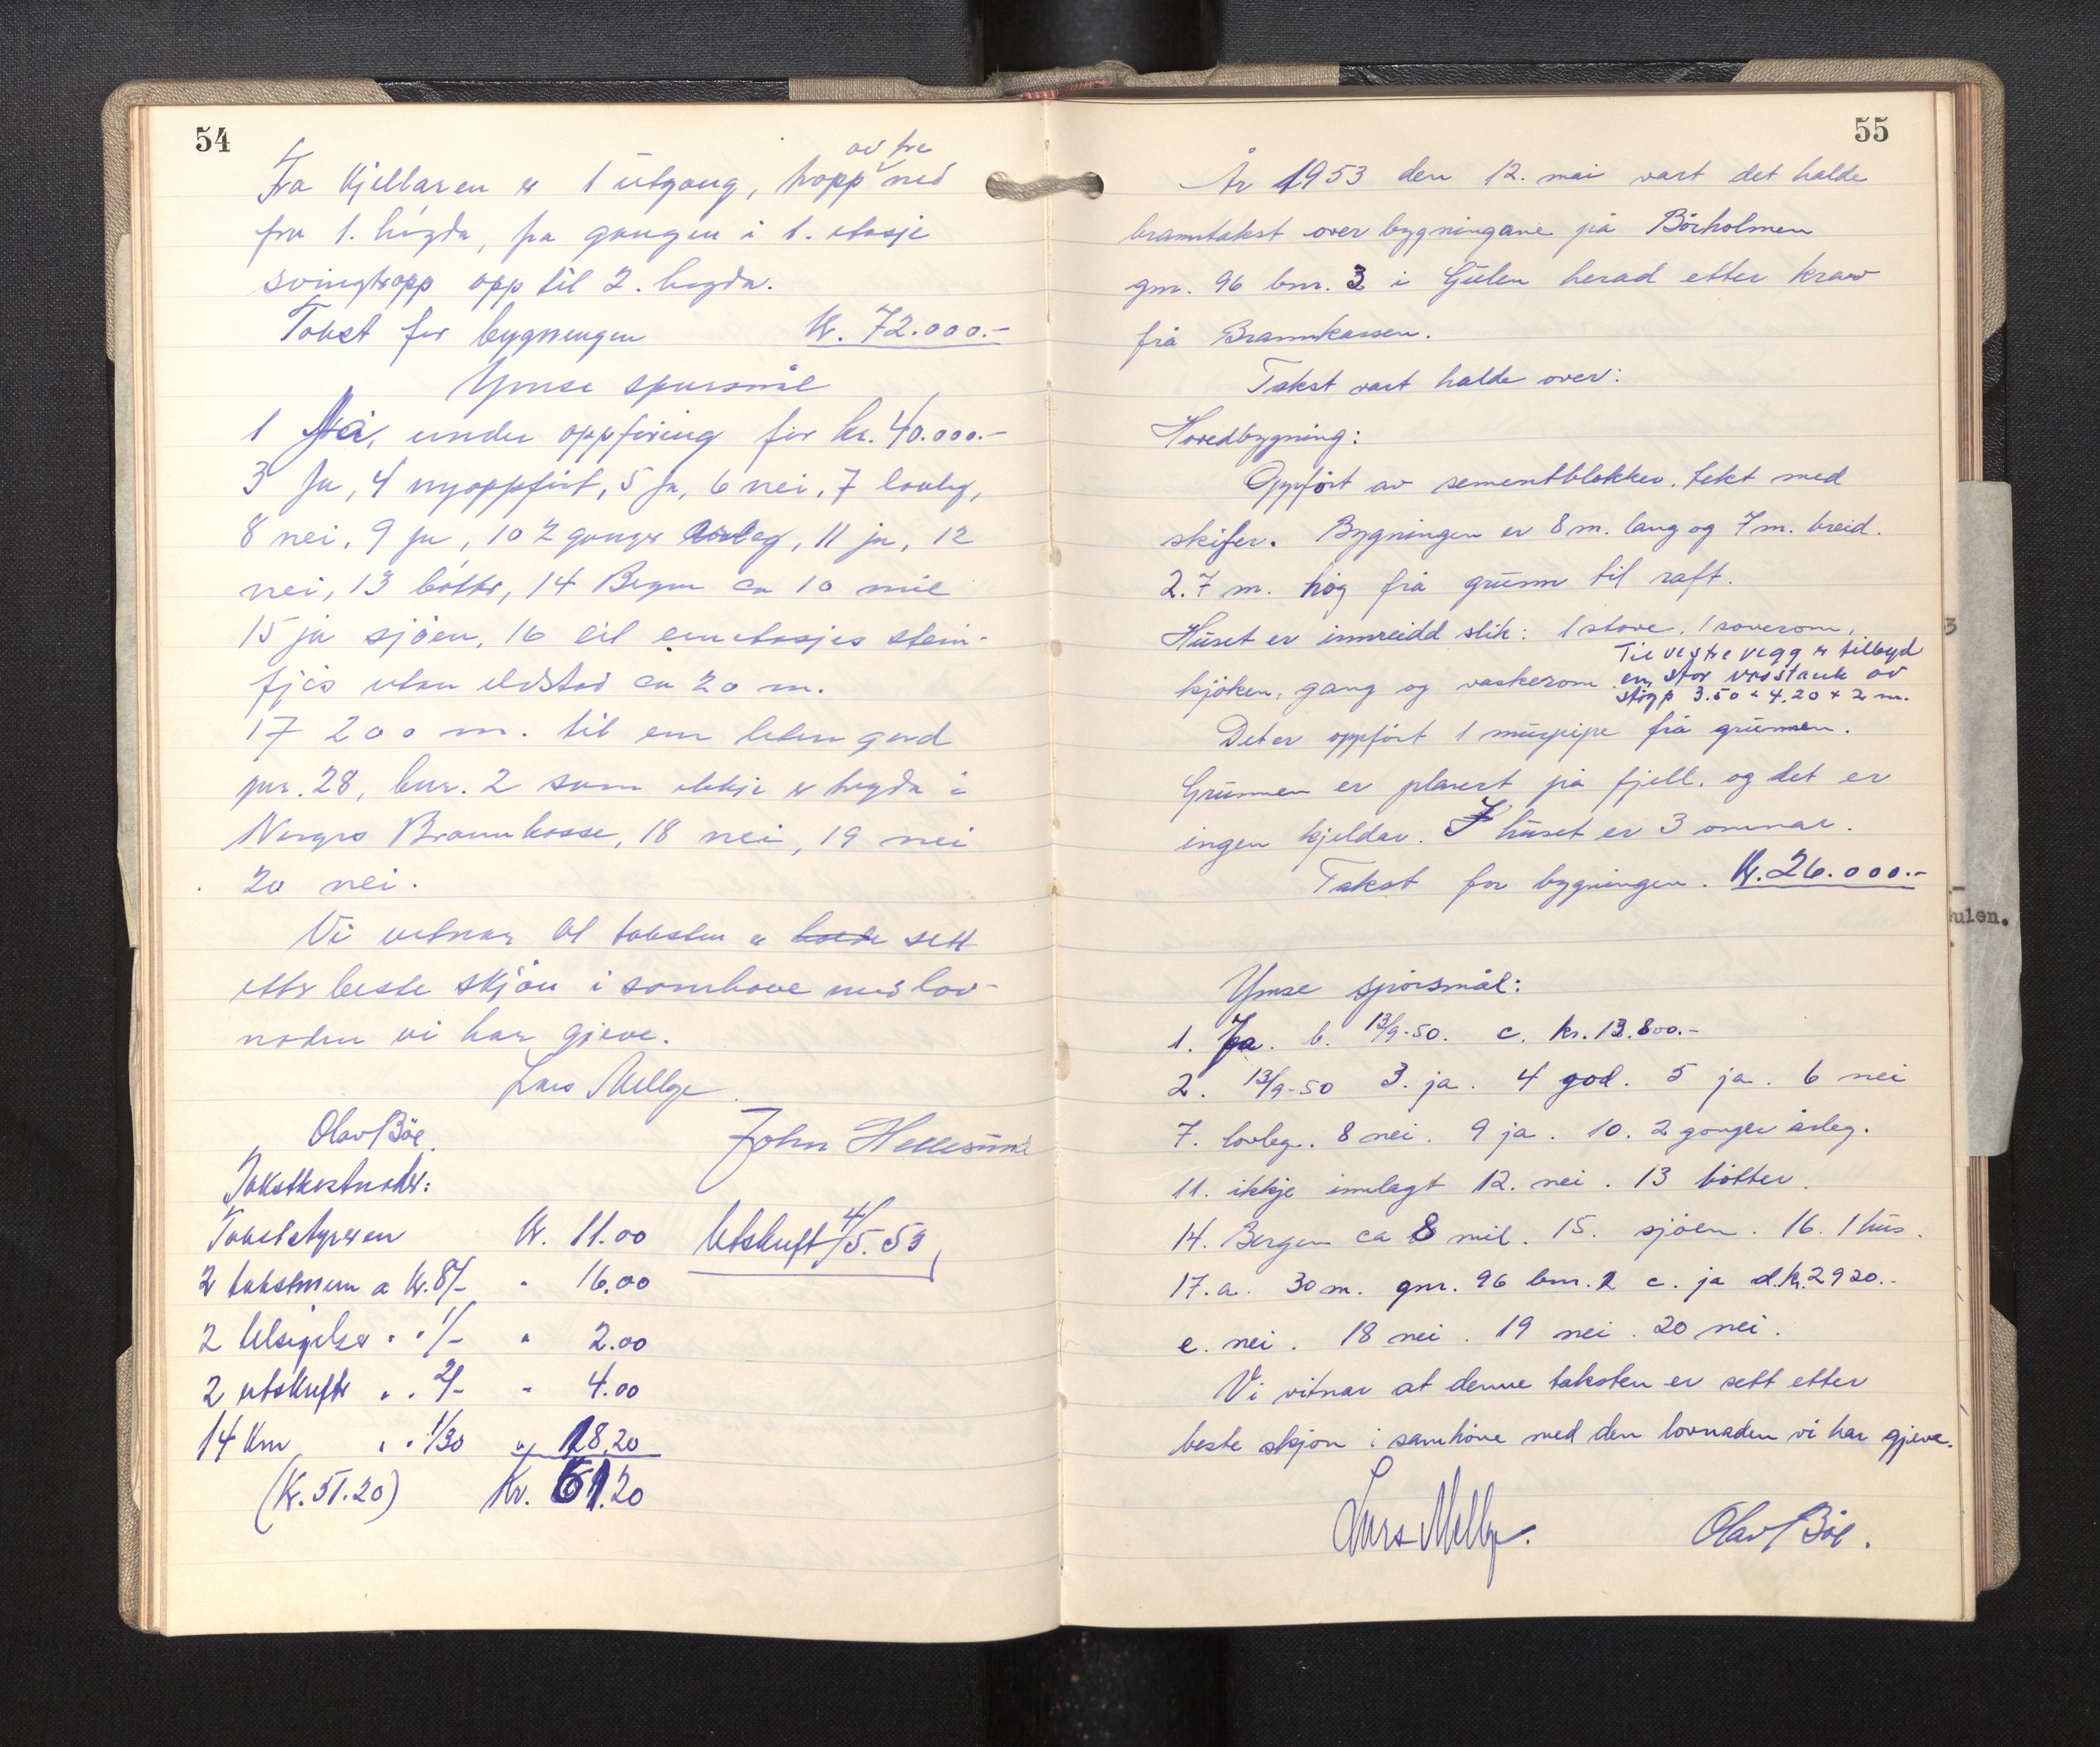 54
av tre
Fra Kjellaren er 1 utgang, trapp ned
fra 1. høgda, fra gangen i 1. etasje
svingtrapp opp til 2. høgda.
Takst for bygningen Kr. 72.000.-
Ymse spursmål
1 Ja, under oppføring for kr. 40.000.-
3 Ja, 4 nyoppført, 5 Ja, 6 nei, 7 lovleg,
8 nei, 9 ja, 10 2 gonger årleg, 11 ja, 12
nei, 13 bøtter, 14 Bergen ca 10 mil
15 ja sjøen, 16 eit einetasjes stein-
fjøs utan eldstad ca 20 m.
17 200 m. til ein liten gard
gnr. 28, bnr. 2 som ikkje er trygda i
Norges Brannkasse, 18 nei, 19 nei
20 nei.
Vi vitnar at taksten er sett
etter beste skjön i samhøve med lov-
naden vi har gjeve.
Lars Mellge
Olav Böe
John Hellesund
Takstkostnader:
Takststyraren Kr. 11.00
Utskrift 4/5. 53
2 takstmenn a Kr. 8/- " 16.00
2 tilsigelser " " 1/- " 2.00
2 utskrifter " " 2/- " 4.00
14 Km " " 1/30 " 18.20
(Kr. 51.20) Kr. 51.20
55
År 1953 den 12. mai vart det halde
branntakst over bygningane på Börholmen
gnr. 96 bnr. 3 i Gulen herad etter krav
frå Brannkassen.
Takst vart halde over:
Hovedbygning:
Oppført av sementblokker, tekt med
skifer. Bygningen er 8 m. lang og 7 m. breid.
2.7 m. høg frå grunn til raft.
Huset er innreidd slik: 1 stove, 1 soverom,
Til vestre vegg er tilbygd
kjöken, gang og vaskerom. en stor vasstank av
støyp 3.50 x 4.20 x 2 m.
Det er oppført 1 murpipe frå grunnen.
Grunnen er plasert på fjell, og det er
ingen kjeldar. I huset er 3 omnar.
Takst for bygningen. Kr. 26.000.-
Ymse spörsmål:
1. Ja. b. 13/9-50. c. kr. 13.800.-
2. 13/9-50 3. ja. 4 god. 5 ja. 6 nei
7. lovleg. 8 nei. 9 ja. 10. 2 gonger årleg.
11. ikkje innlagt 12. nei. 13 bötter.
14. Bergen ca 8 mil. 15. sjöen. 16. 1 hus.
17. a. 30 m. gnr. 96 bnr. 2 c. ja d. kr. 2920.-
e. nei. 18 nei. 19 nei. 20 nei.
Vi vitnar at denne taksten er sett etter
beste skjön i samhöve med den lovnaden vi har gjeve.
Lars Mellge.
Olav Böe.
3
ulen.